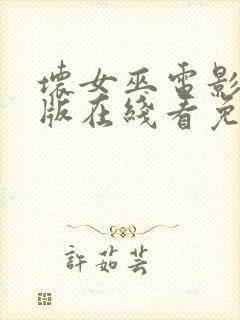 壞女巫電影
版在綫看免
許茹芸